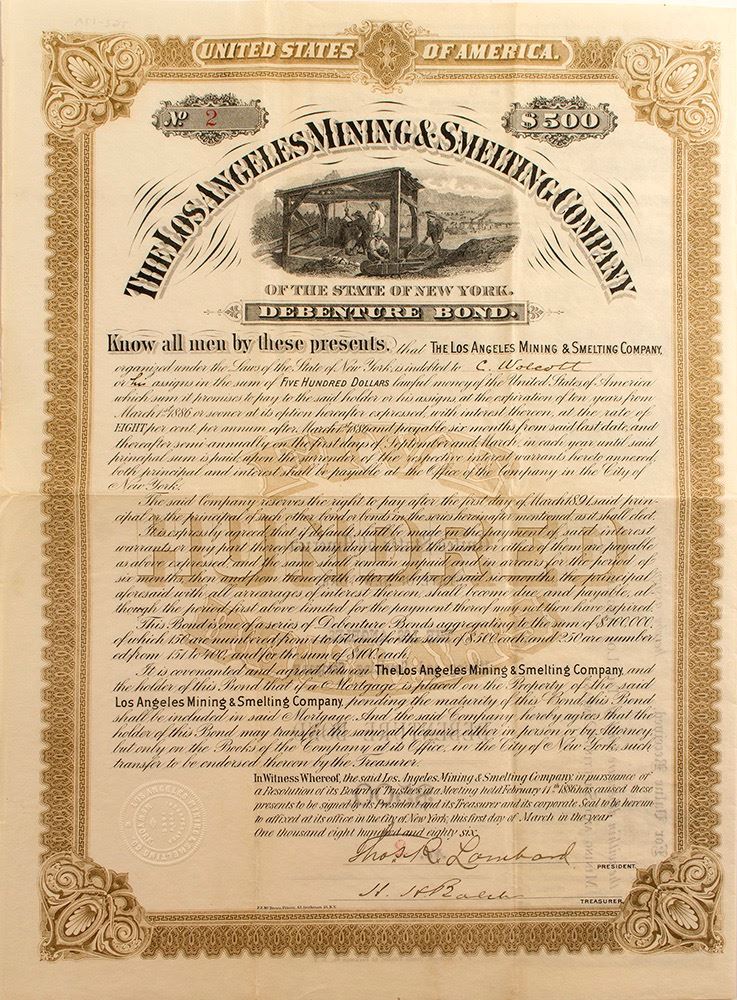 UNITED STATES OF AMERICA.
No 2
$500
THE LOS ANGELES MINING & SMELTING COMPANY
OF THE STATE OF NEW YORK.
DEBENTURE BOND.
Know all men by these presents, that THE LOS ANGELES MINING & SMELTING COMPANY,
organized under the Laws of the State of New York, is indebted to C. Wolcott
or his assigns in the sum of FIVE HUNDRED DOLLARS lawful money of the United States of America
which sum it promises to pay to the said holder or his assigns, at the expiration of ten years from
March 1st 1886 or sooner at its option hereafter expressed, with interest thereon, at the rate of
EIGHT per cent. per annum after March 1st 1886 and payable six months from said last date, and
thereafter semi-annually on the first days of September and March, in each year until said
principal sum is paid, upon the surrender of the respective interest warrants hereto annexed,
both principal and interest shall be payable at the Office of the Company in the City of
New York.
The said Company reserves the right to pay after the first day of March 1891, said prin-
cipal or the principal of such other bond or bonds in the series hereinafter mentioned, as it shall elect.
It is expressly agreed that if default shall be made in the payment of said interest
warrants or any part thereof on any day wherein the same or either of them are payable
as above expressed, and the same shall remain unpaid and in arrears for the period of
six months, then and from thenceforth, after the lapse of said six months the principal
aforesaid with all arrearages of interest thereon, shall become due and payable, al-
though the period first above limited for the payment thereof may not then have expired.
This Bond is one of a series of Debenture Bonds aggregating to the sum of $100,000,
of which 150 are numbered from 1 to 150 and for the sum of $500 each, and 250 are number-
ed from 151 to 400, and for the sum of $100 each.
It is covenanted and agreed between The Los Angeles Mining & Smelting Company, and
the holder of this Bond that if a Mortgage is placed on the Property of the said
Los Angeles Mining & Smelting Company, pending the maturity of this Bond, this Bond
shall be included in said Mortgage. And the said Company hereby agrees that the
holder of this Bond may transfer the same at pleasure either in person or by Attorney
but only on the Books of the Company at its Office, in the City of New York, such
transfer to be endorsed thereon by the Treasurer.
In Witness Whereof, the said Los Angeles Mining & Smelting Company, in pursuance of
a Resolution of its Board of Trustees at a Meeting held February 11th 1886 has caused these
presents to be signed by its President and its Treasurer and its corporate Seal to be hereun-
to affixed at its office in the City of New York, this first day of March in the year
One thousand eight hundred and eighty six.
Thos. R. Lombard
PRESIDENT.
H. H. Balch
TREASURER.
FIVE
HUNDRED